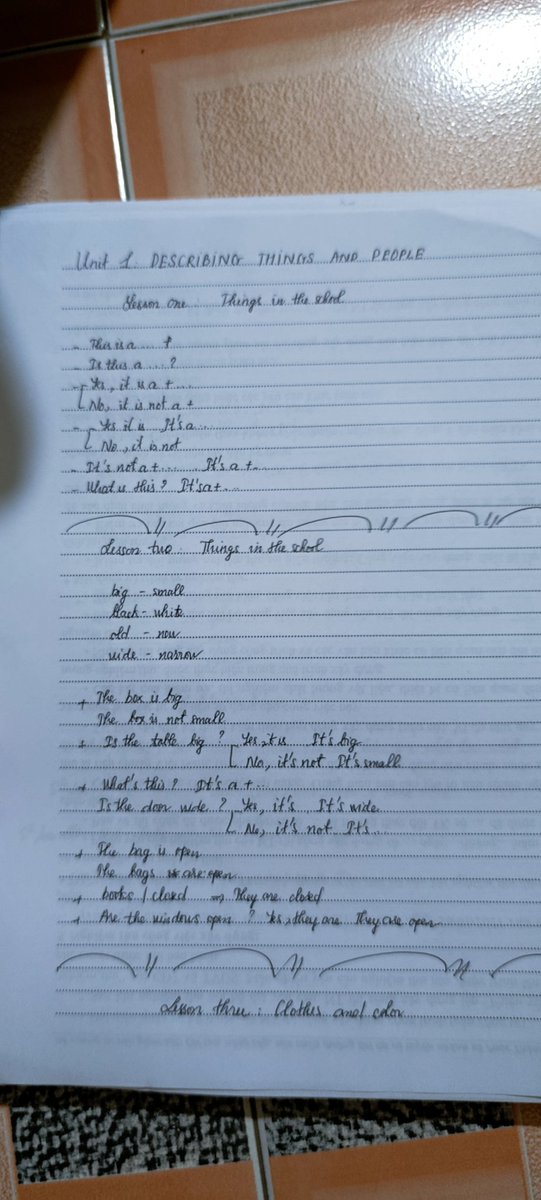 Unit 1. DESCRIBING THINGS AND PEOPLE
Lesson one: Things in the school
- This is a ..... +
- Is this a .....?
- Yes, it is a + ....
No, it is not a +
- Yes it is It's a ...
No, it is not
- It's not a + ..... It's a + ...
- What is this? It's a + ...
Lesson two: Things in the school
big - small
black - white
old - new
wide - narrow
+ The box is big
The box is not small
+ Is the table big? Yes, it is It's big
No, it's not It's small
+ What's this? It's a + ...
Is the door wide? Yes, it's It's wide
No, it's not It's
+ The bag is open
The bags are open
+ books / closed → They are closed
+ Are the windows open? Yes, they are They are open
Lesson three: Clothes and color